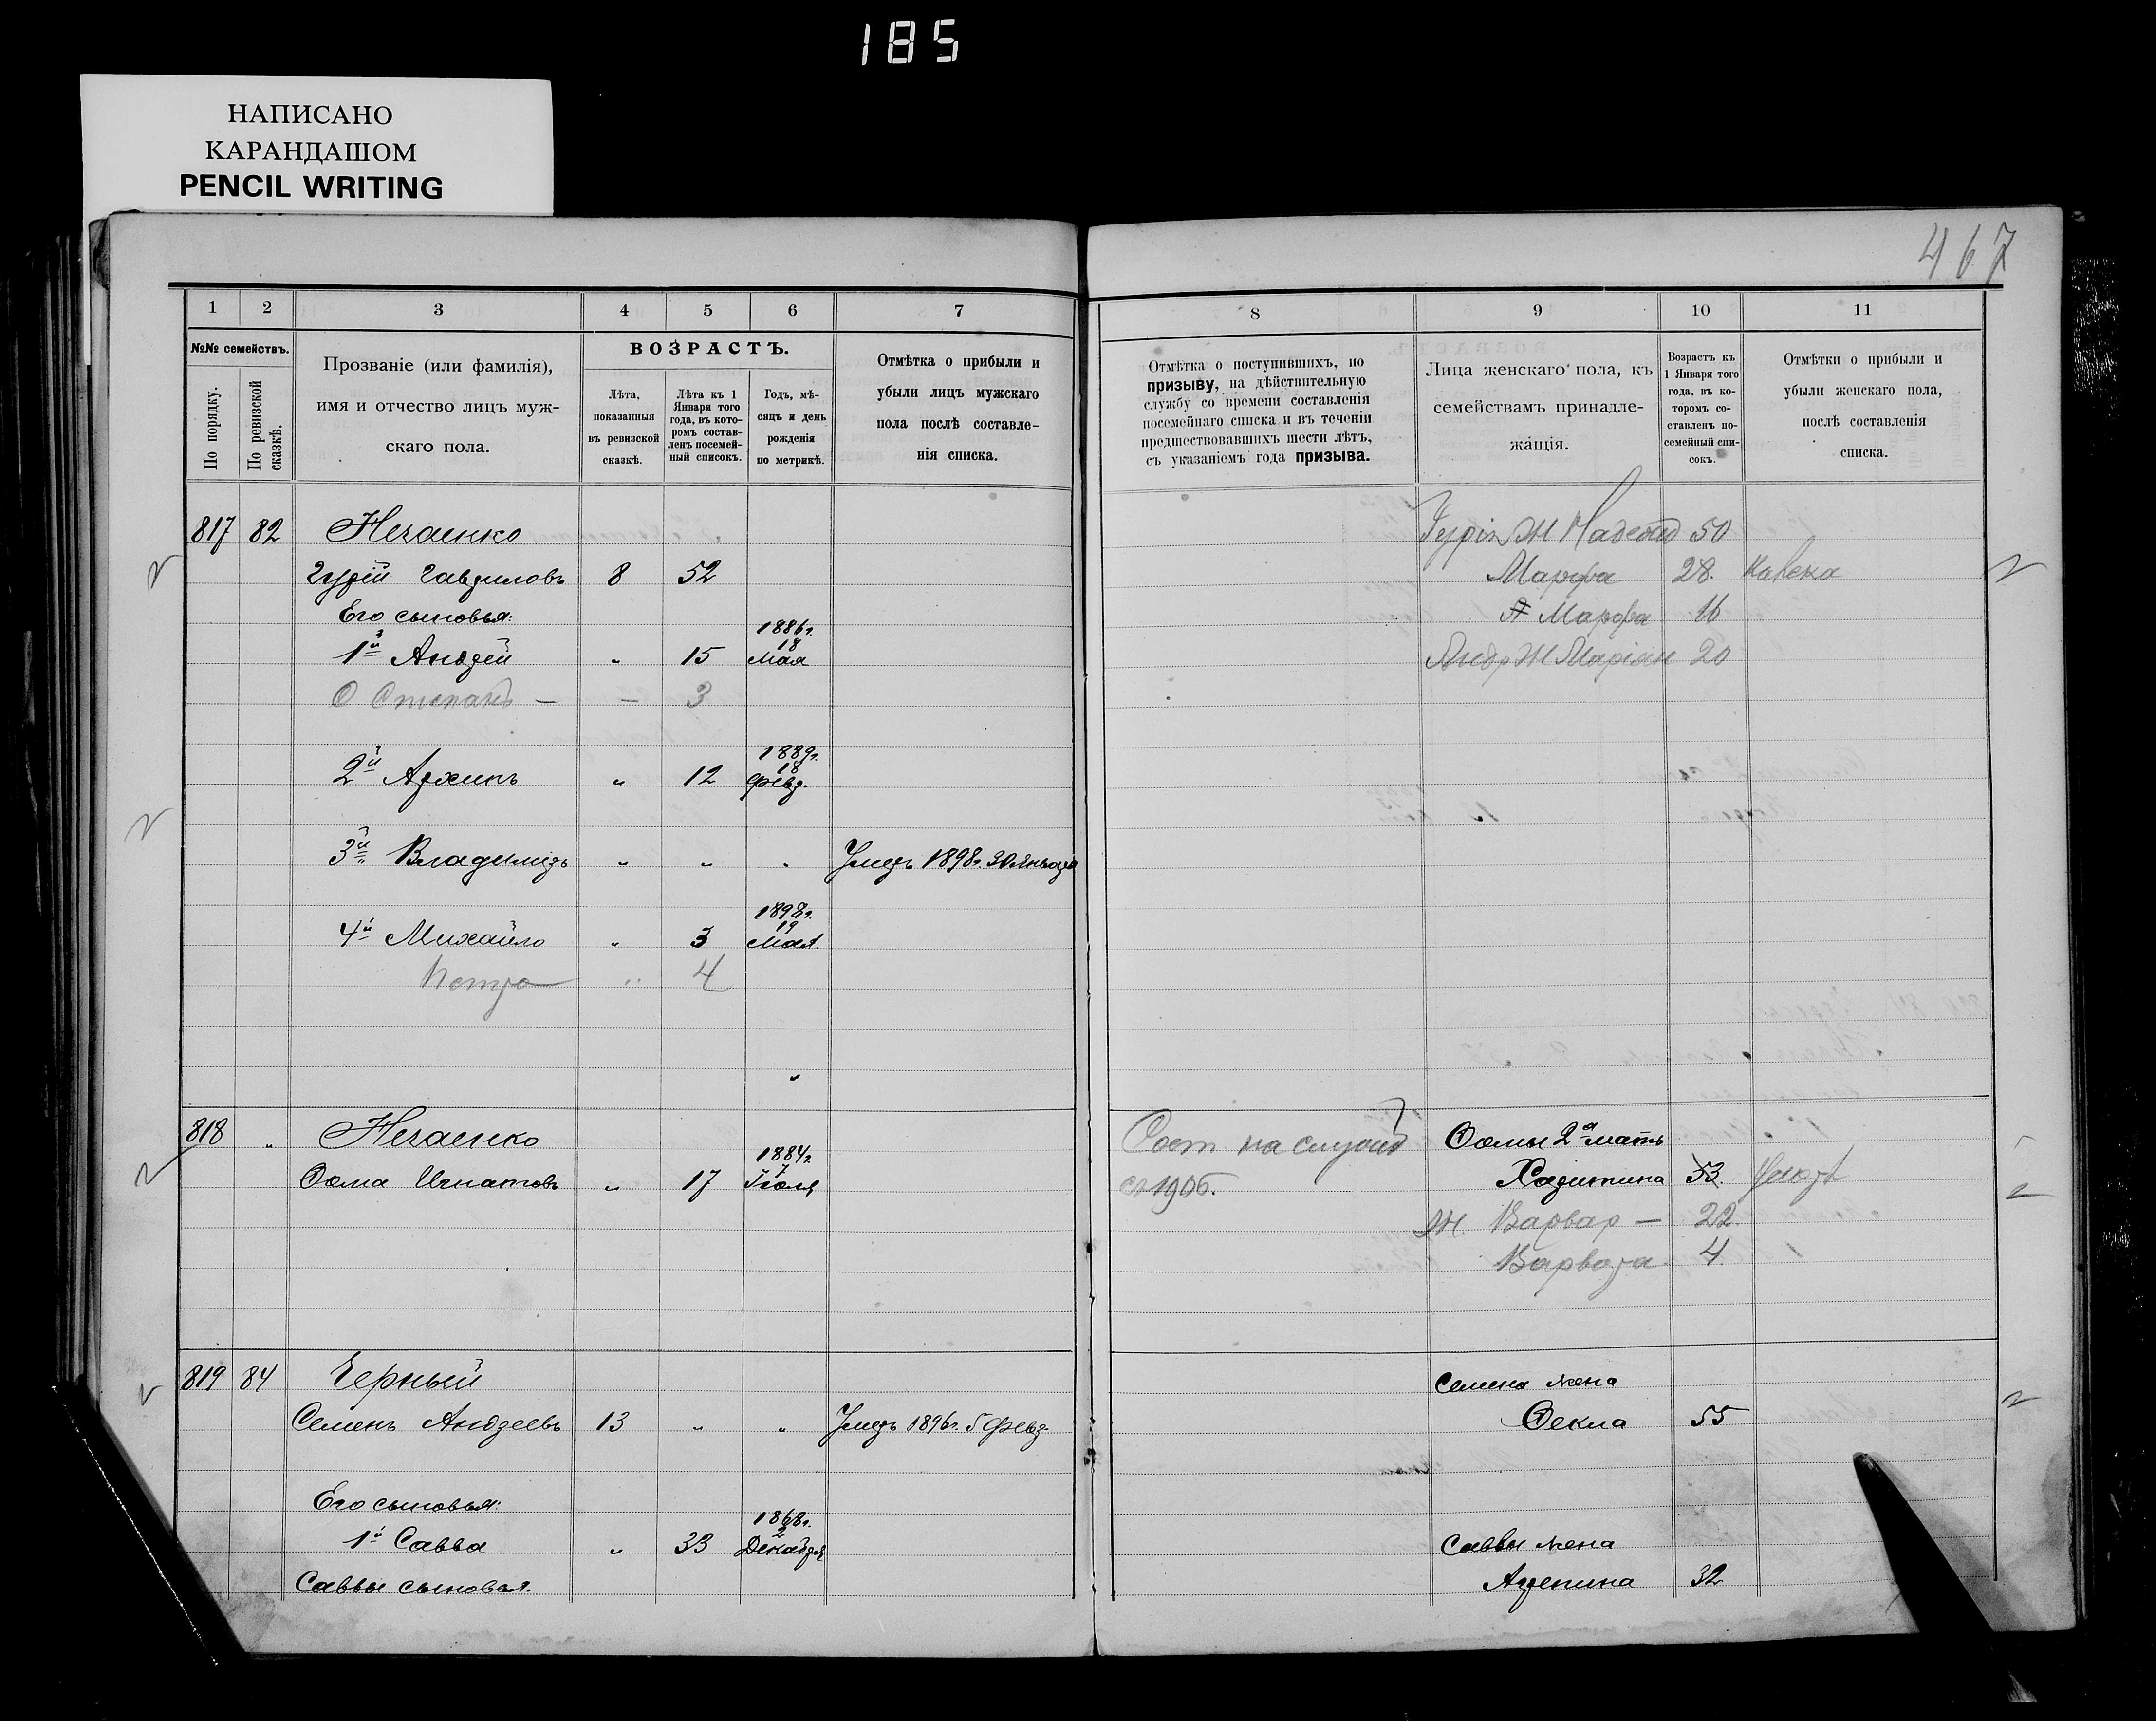 185
НАПИСАНО
КАРАНДАШОМ
PENCIL WRITING
467
1 2 3 4 5 6 7
№№ семействъ.
По порядку.
По ревизской сказкѣ.
Прозваніе (или фамилія),
имя и отчество лицъ муж-
скаго пола.
ВОЗРАСТЪ.
Лѣта,
показанныя
въ ревизской
сказкѣ.
Лѣта къ 1
Января того
года, въ кото-
ромъ состав-
ленъ посемей-
ный списокъ.
Годъ, мѣ-
сяцъ и день
рожденія
по метрикѣ.
Отмѣтка о прибыли и
убыли лицъ мужскаго
пола послѣ составле-
нія списка.
817 82 Нечаенко
Гурій Гавриловъ 8 52
Его сыновья:
1й Андрей " 15 1886г. 18 Мая
О Степанъ — — 3
2й Архипъ " 12 1889г. 18 Февр.
3й Владиміръ " " " Умеръ 1898г. 30 Января
4й Михайло " 3 1898г. 19 Мая.
Петро " 4
818 " Нечаенко
Ѳома Игнатовъ " 17 1884г. 7 Іюля
819 84 Черный
Семенъ Андреевъ 13 " " Умеръ 1896г. 5 Февр.
Его сыновья:
1й Савва " 33 1868г. 2 Декабря
Саввы сыновья.
8 9 10 11
Отмѣтка о поступившихъ, по
призыву, на дѣйствительную
службу со времени составленія
посемейнаго списка и въ теченіи
предшествовавшихъ шести лѣтъ,
съ указаніемъ года призыва.
Лица женскаго пола, къ
семействамъ принадле-
жащія.
Возрастъ къ
1 Января того
года, въ ко-
торомъ со-
ставленъ по-
семейный спи-
сокъ.
Отмѣтки о прибыли и
убыли женскаго пола,
послѣ составленія
списка.
Гурія Ж 50
Марфа 28.
Марфа 16
Андр Ж Маріян 20
Сост на Ѳомы 2я мать
съ 1906. Харитина 53.
Ж Варвар — 22.
Варвара 4.
Семена жена
Ѳекла 55
Саввы жена
Агрепина 32